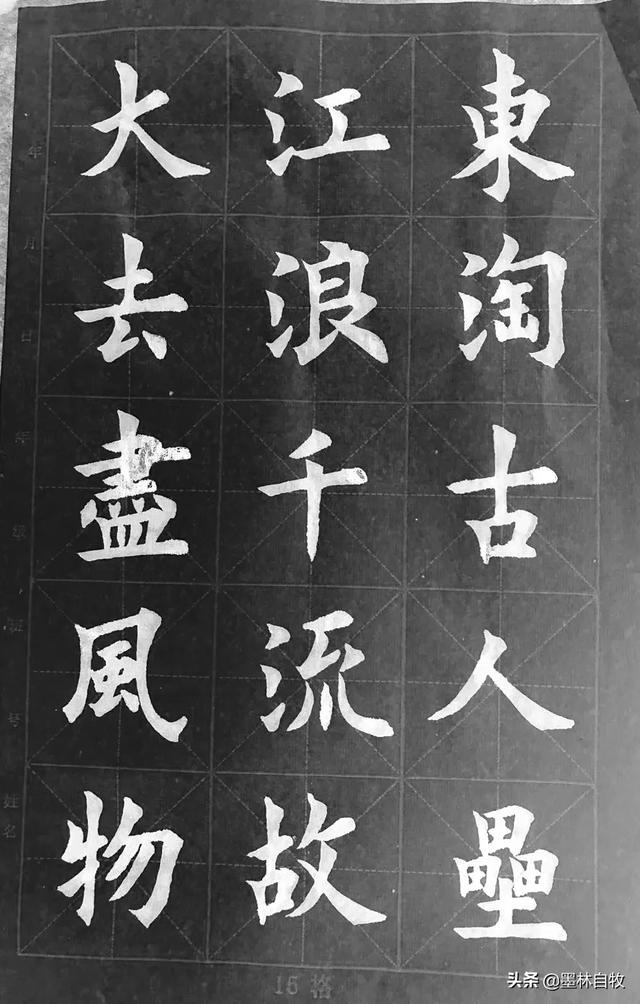 大江東
去浪淘
盡千古
風流人
物故壘
年
月
日
班
号
姓名
15格
头条 @墨林自牧